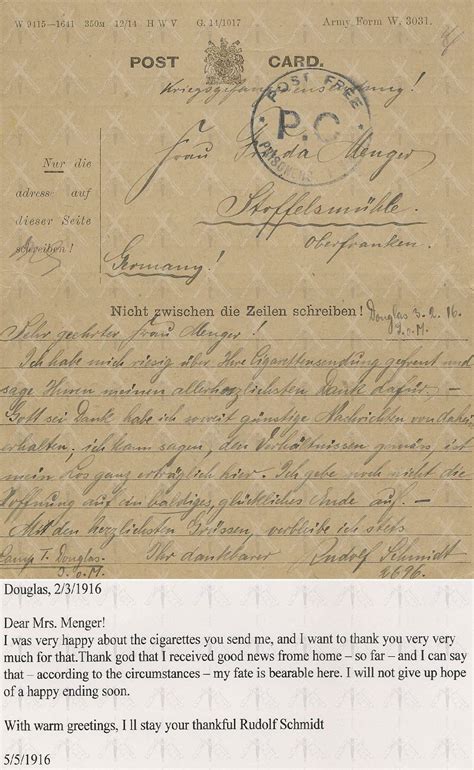 W 9415—1641 350m 12/14 H W V G. 14/1017 Army Form W. 3031.
POST CARD.
Kriegsgefangenensendung!
POST FREE
P.C.
PRISONERS
Frau Frida Menger
Nur die
adresse auf
dieser Seite
schreiben!
Stoffelsmühle.
Oberfranken.
Germany!
Nicht zwischen die Zeilen schreiben!
Douglas 3.2.16.
I.o.M.
Sehr geehrter Frau Menger!
Ich habe mich riesig über Ihre Cigarettensendung gefreut und
sage Ihnen meinen allerherzlichsten Dank dafür. —
Gott sei Dank habe ich soweit günstige Nachrichten von daheim
erhalten; ich kann sagen, den Verhältnissen gemäss, ist
mein Los ganz erträglich hier. Ich gebe noch nicht die
Hoffnung auf ein baldiges, glückliches Ende auf. —
Mit den herzlichsten Grüssen, verbleibe ich stets
Camp I. Douglas. Ihr dankbarer Rudolf Schmidt
I.o.M. 2696.
Douglas, 2/3/1916
Dear Mrs. Menger!
I was very happy about the cigarettes you send me, and I want to thank you very very
much for that.Thank god that I received good news frome home – so far – and I can say
that – according to the circumstances – my fate is bearable here. I will not give up hope
of a happy ending soon.
With warm greetings, I ll stay your thankful Rudolf Schmidt
5/5/1916